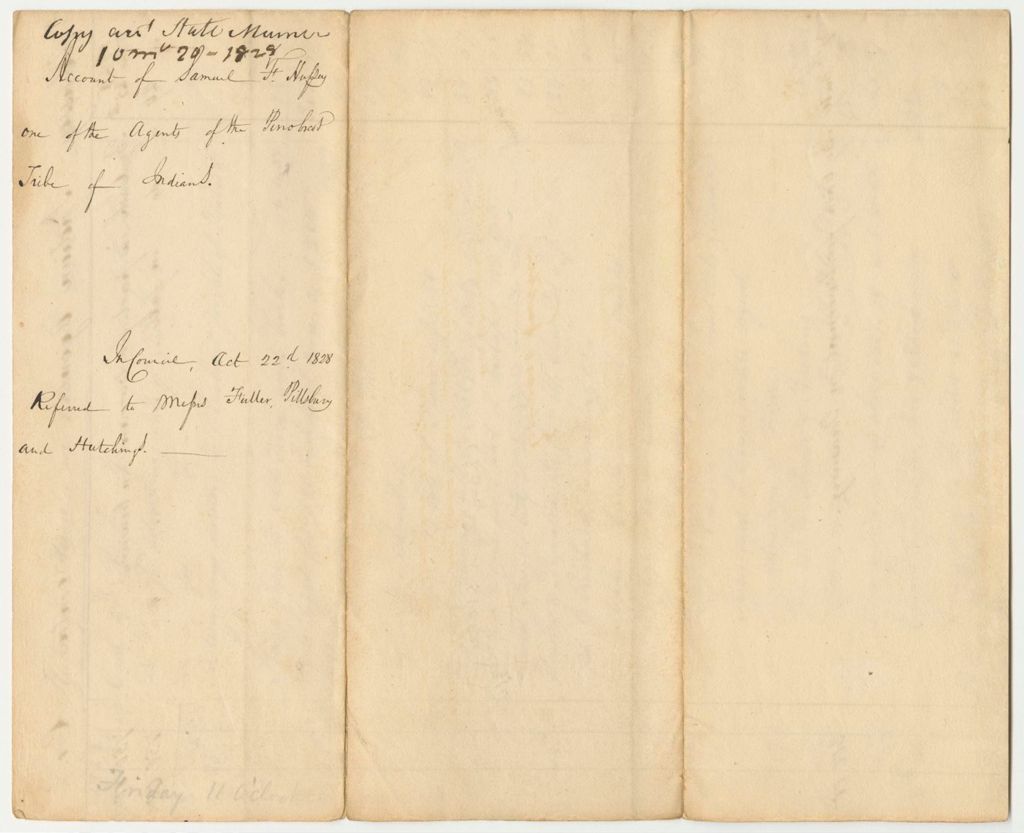 Copy
10 mo 29 - 1828
Account of Samuel F. Hussey
one of the Agents of the Penobscot
Tribe of Indians.
In Council, Oct 22d 1828
Referred to Messrs Fuller, Pillsbury
and Hutchings.
Friday 11 O'clock